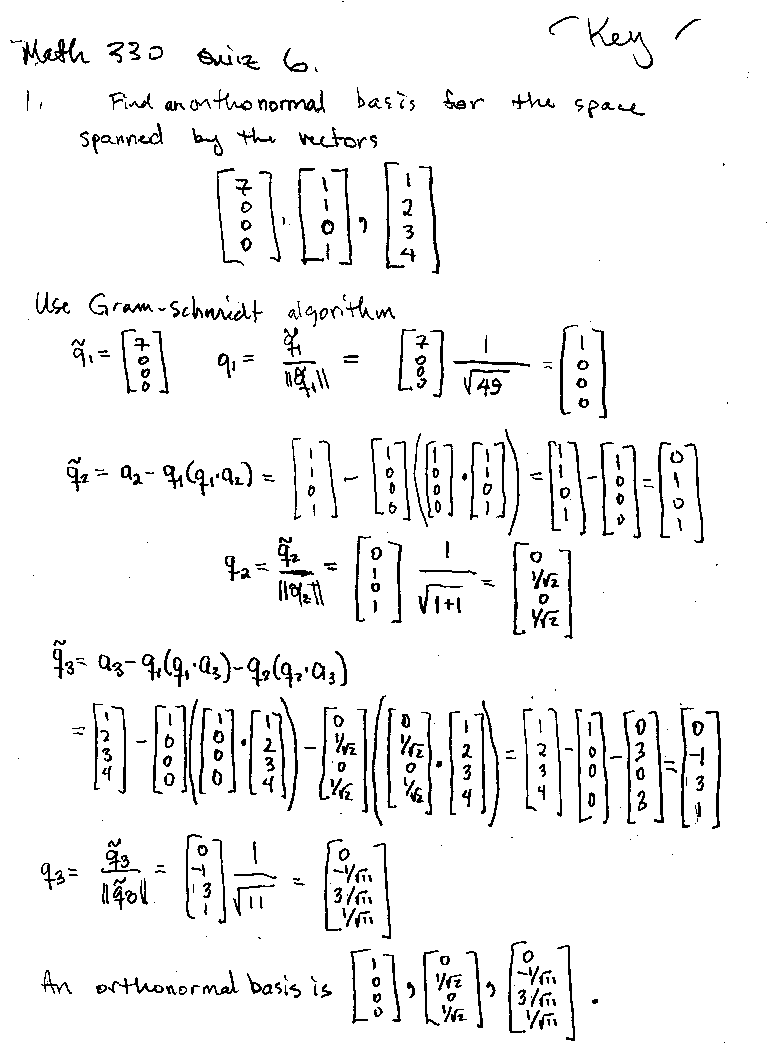 Key
Math 330 Quiz 6.
1. Find an orthonormal basis for the space
spanned by the vectors
[7 0 0 0], [1 1 0 1], [1 2 3 4]
Use Gram-Schmidt algorithm
q̃₁ = [7 0 0 0] q₁ = q̃₁/||q̃₁|| = [7 0 0 0] 1/√49 = [1 0 0 0]
q̃₂ = a₂ - q₁(q₁·a₂) = [1 1 0 1] - [1 0 0 0]([1 0 0 0]·[1 1 0 1]) = [1 1 0 1] - [1 0 0 0] = [0 1 0 1]
q₂ = q̃₂/||q̃₂|| = [0 1 0 1] 1/√1+1 = [0 1/√2 0 1/√2]
q̃₃ = a₃ - q₁(q₁·a₃) - q₂(q₂·a₃)
= [1 2 3 4] - [1 0 0 0]([1 0 0 0]·[1 2 3 4]) - [0 1/√2 0 1/√2]([0 1/√2 0 1/√2]·[1 2 3 4]) = [1 2 3 4] - [1 0 0 0] - [0 3 0 3] = [0 -1 3 1]
q₃ = q̃₃/||q̃₃|| = [0 -1 3 1] 1/√11 = [0 -1/√11 3/√11 1/√11]
An orthonormal basis is [1 0 0 0], [0 1/√2 0 1/√2], [0 -1/√11 3/√11 1/√11].